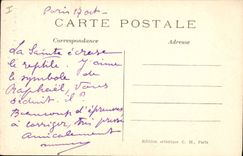 I
Paris 17 oct
CARTE POSTALE
Correspondance
Adresse
La Sainte écrase
le reptile. J'aime
le symbole de
Raphaël. Vous
séduit-il ?
Beaucoup d'épreuves
à corriger, très pressé
Amicalement
Edition artistique C. M., Paris